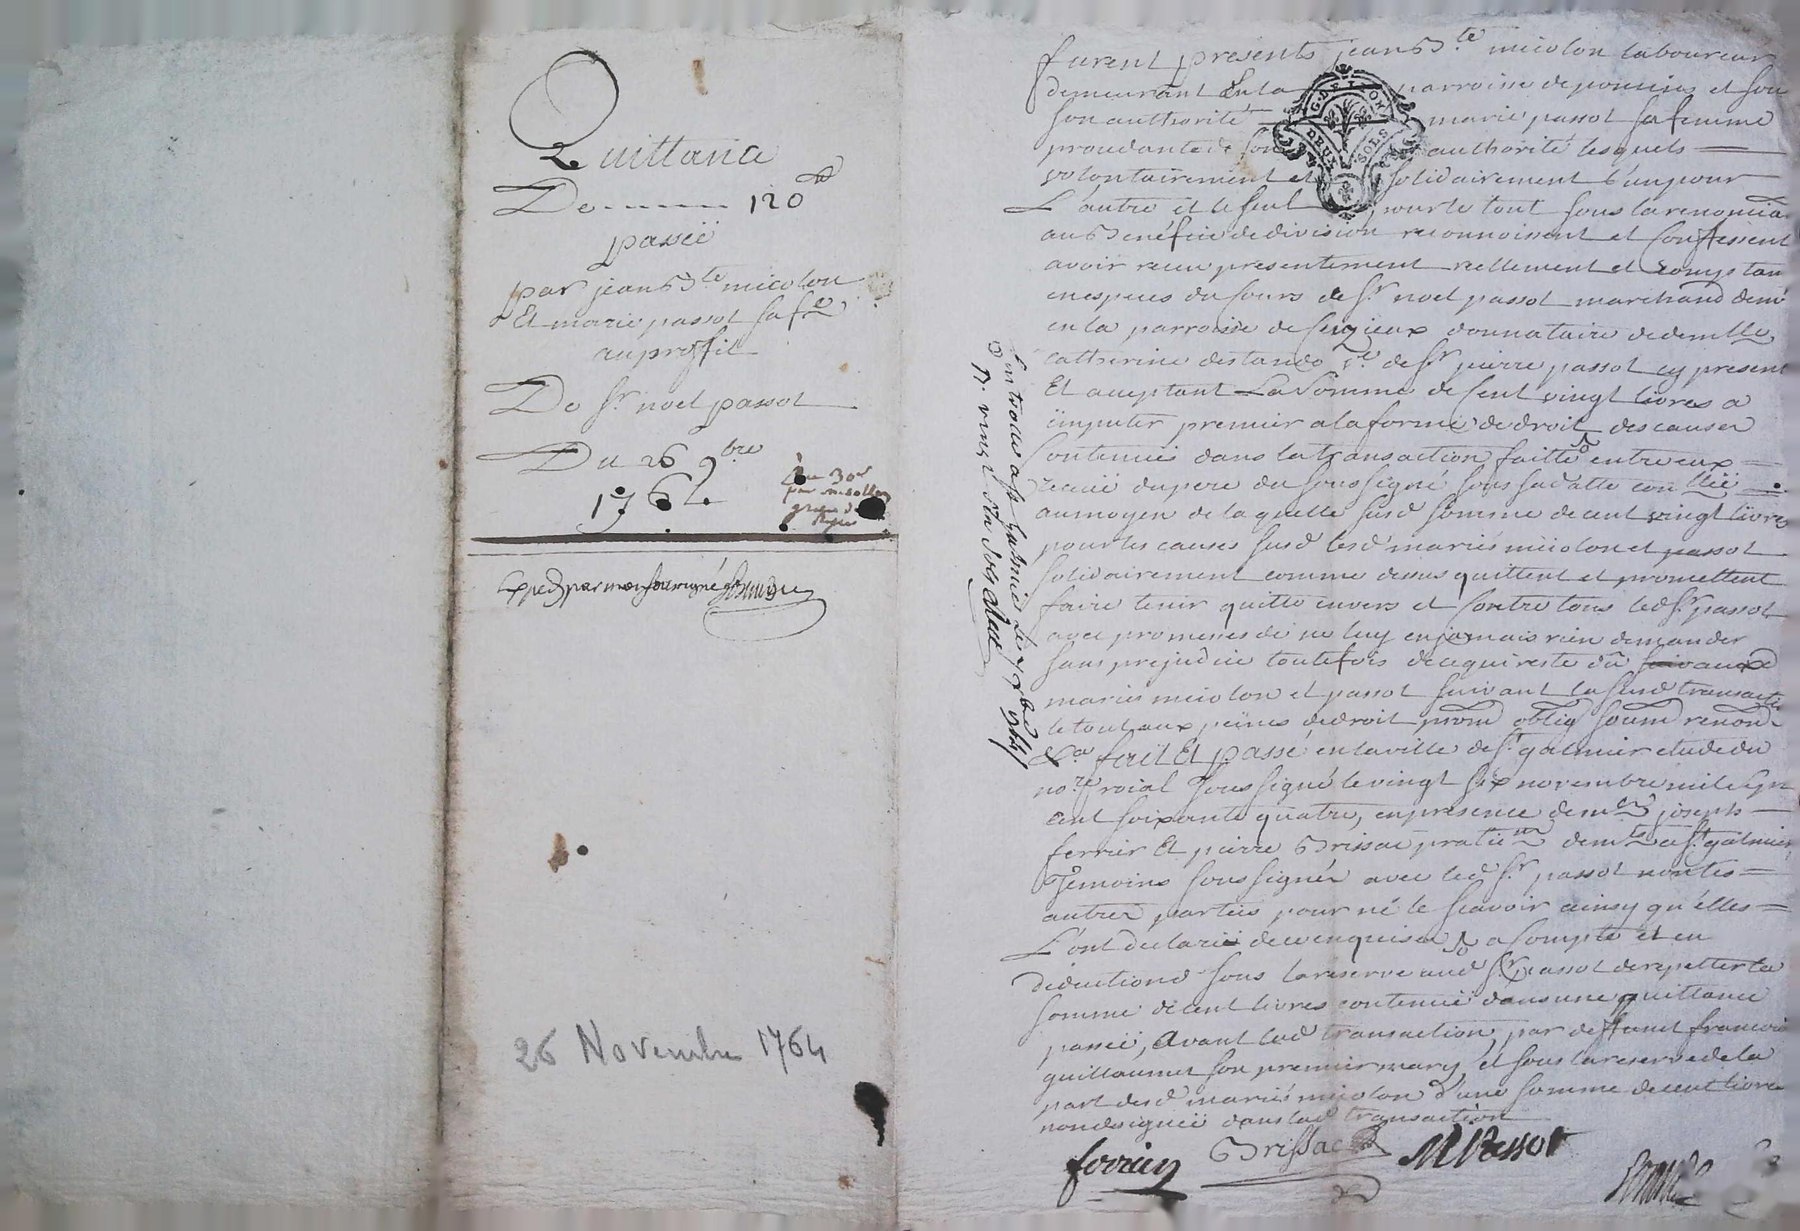 Quittance
De ------ 120 tt
passée
par jean B.te micolon
Et marie passot sa f.e
au proffit
De S.r noel passot
Du 26 9.bre
1764.
par
Exped par moy soussigné
26 Novembre 1764
furent presents jean B.te micolon laboureur
demeurant en la parroisse de poncins et sous
son authorité marie passot sa femme
procedante de son authorité lesquels
volontairement et solidairement l'un pour
L'autre et le seul pour le tout sous la renoncia
au Benefice de division reconnoissent et Confessent
avoir receu presentement reellement et comptan
en especes du Cours de S.r noel passot marchand dem.t
en la parroisse de donnataire de dem.lle
catherine v.e de S.r pierre passot cy present
Et acceptant La Somme de Cent vingt livres a
imputer premier a la forme de droit des causes
Contenues dans la transaction faitte entre eux
recüe du pere du soussigné sous sa datte con.lléé
au moyen de la quelle susd somme de cent vingt livres
pour les causes susd lesd mariés micolon et passot
solidairement comme dessus quittent et promettent
faire tenir quitte envers et Contre tous led S.r passot
avec promesses de ne luy en jamais rien demander
sans prejudice toutefois de ce qui reste dû auxd
mariés micolon et passot suivant la susd transact.
le tout aux peines de droit prom oblig soum renon
&.a fait Et passé en la ville de S.t galmier etude du
no.re roial soussigné le vingt six novembre mil sept
cent soixante quatre, en presence de m.es joseph
ferrier Et pierre Brissac pratic.ns dem.ts a S.t galmier
Temoins soussignés avec led S.r passot non les
autres parties pour ne le scavoir ainsy qu'elles
L'ont declaré de ce enquises a Compte et en
deductiond sous la reserve aud S.r passot de repetter la
somme de cent livres contenue dans une quittance
passée, avant lad transaction, par deffunct francois
guillaumet son premier mary, et sous la reserve de la
part desd mariés micolon d'une somme de cent livres
non designée dans lad transaction
Controllé a S.t Galmier Le
ferrier Brissac N Passot
G. DE LYON
DEUX SOLS